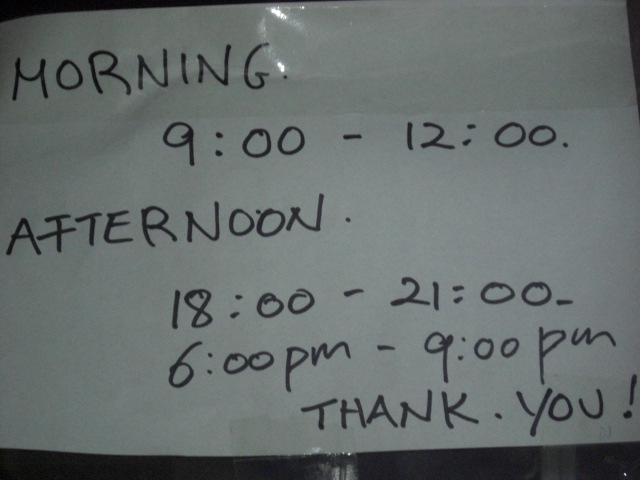 MORNING.
9:00 - 12:00.
AFTERNOON.
18:00 - 21:00-
6:00pm - 9:00pm
THANK. YOU!